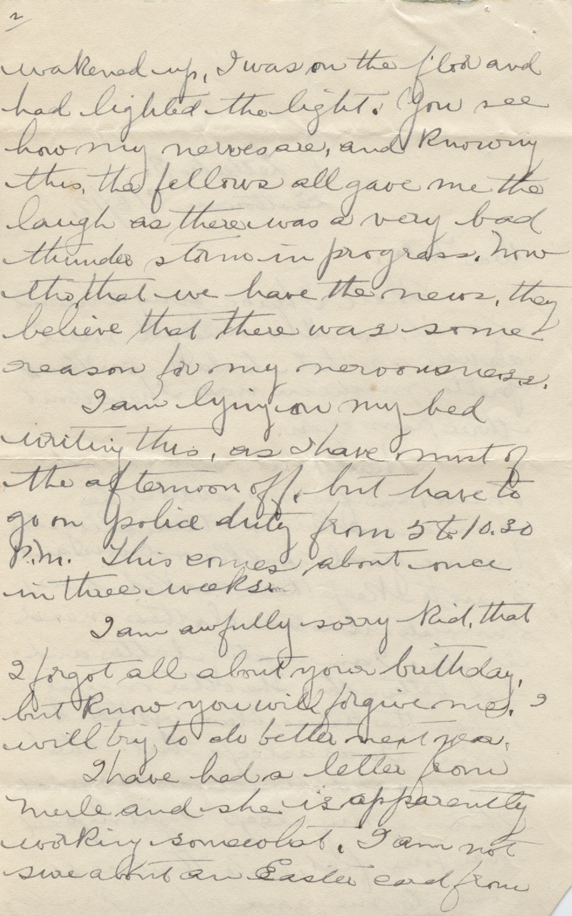 2
wakened up, I was on the floor and
had lighted the light. You see
how my nerves are, and knowing
this, the fellows all gave me the
laugh as there was a very bad
thunder storm in progress. Now
tho, that we have the news, they
believe that there was some
reason for my nervousness.
I am lying on my bed
writing this, as I have most of
the afternoon off, but have to
go on police duty from 5 to 10.30
P.M. This comes about once
in three weeks.
I am awfully sorry Kid, that
I forgot all about your birthday,
but know you will forgive me. I
will try to do better next year.
I have had a letter from
Merle and she is apparently
working somewhat. I am not
sure about an Easter card from